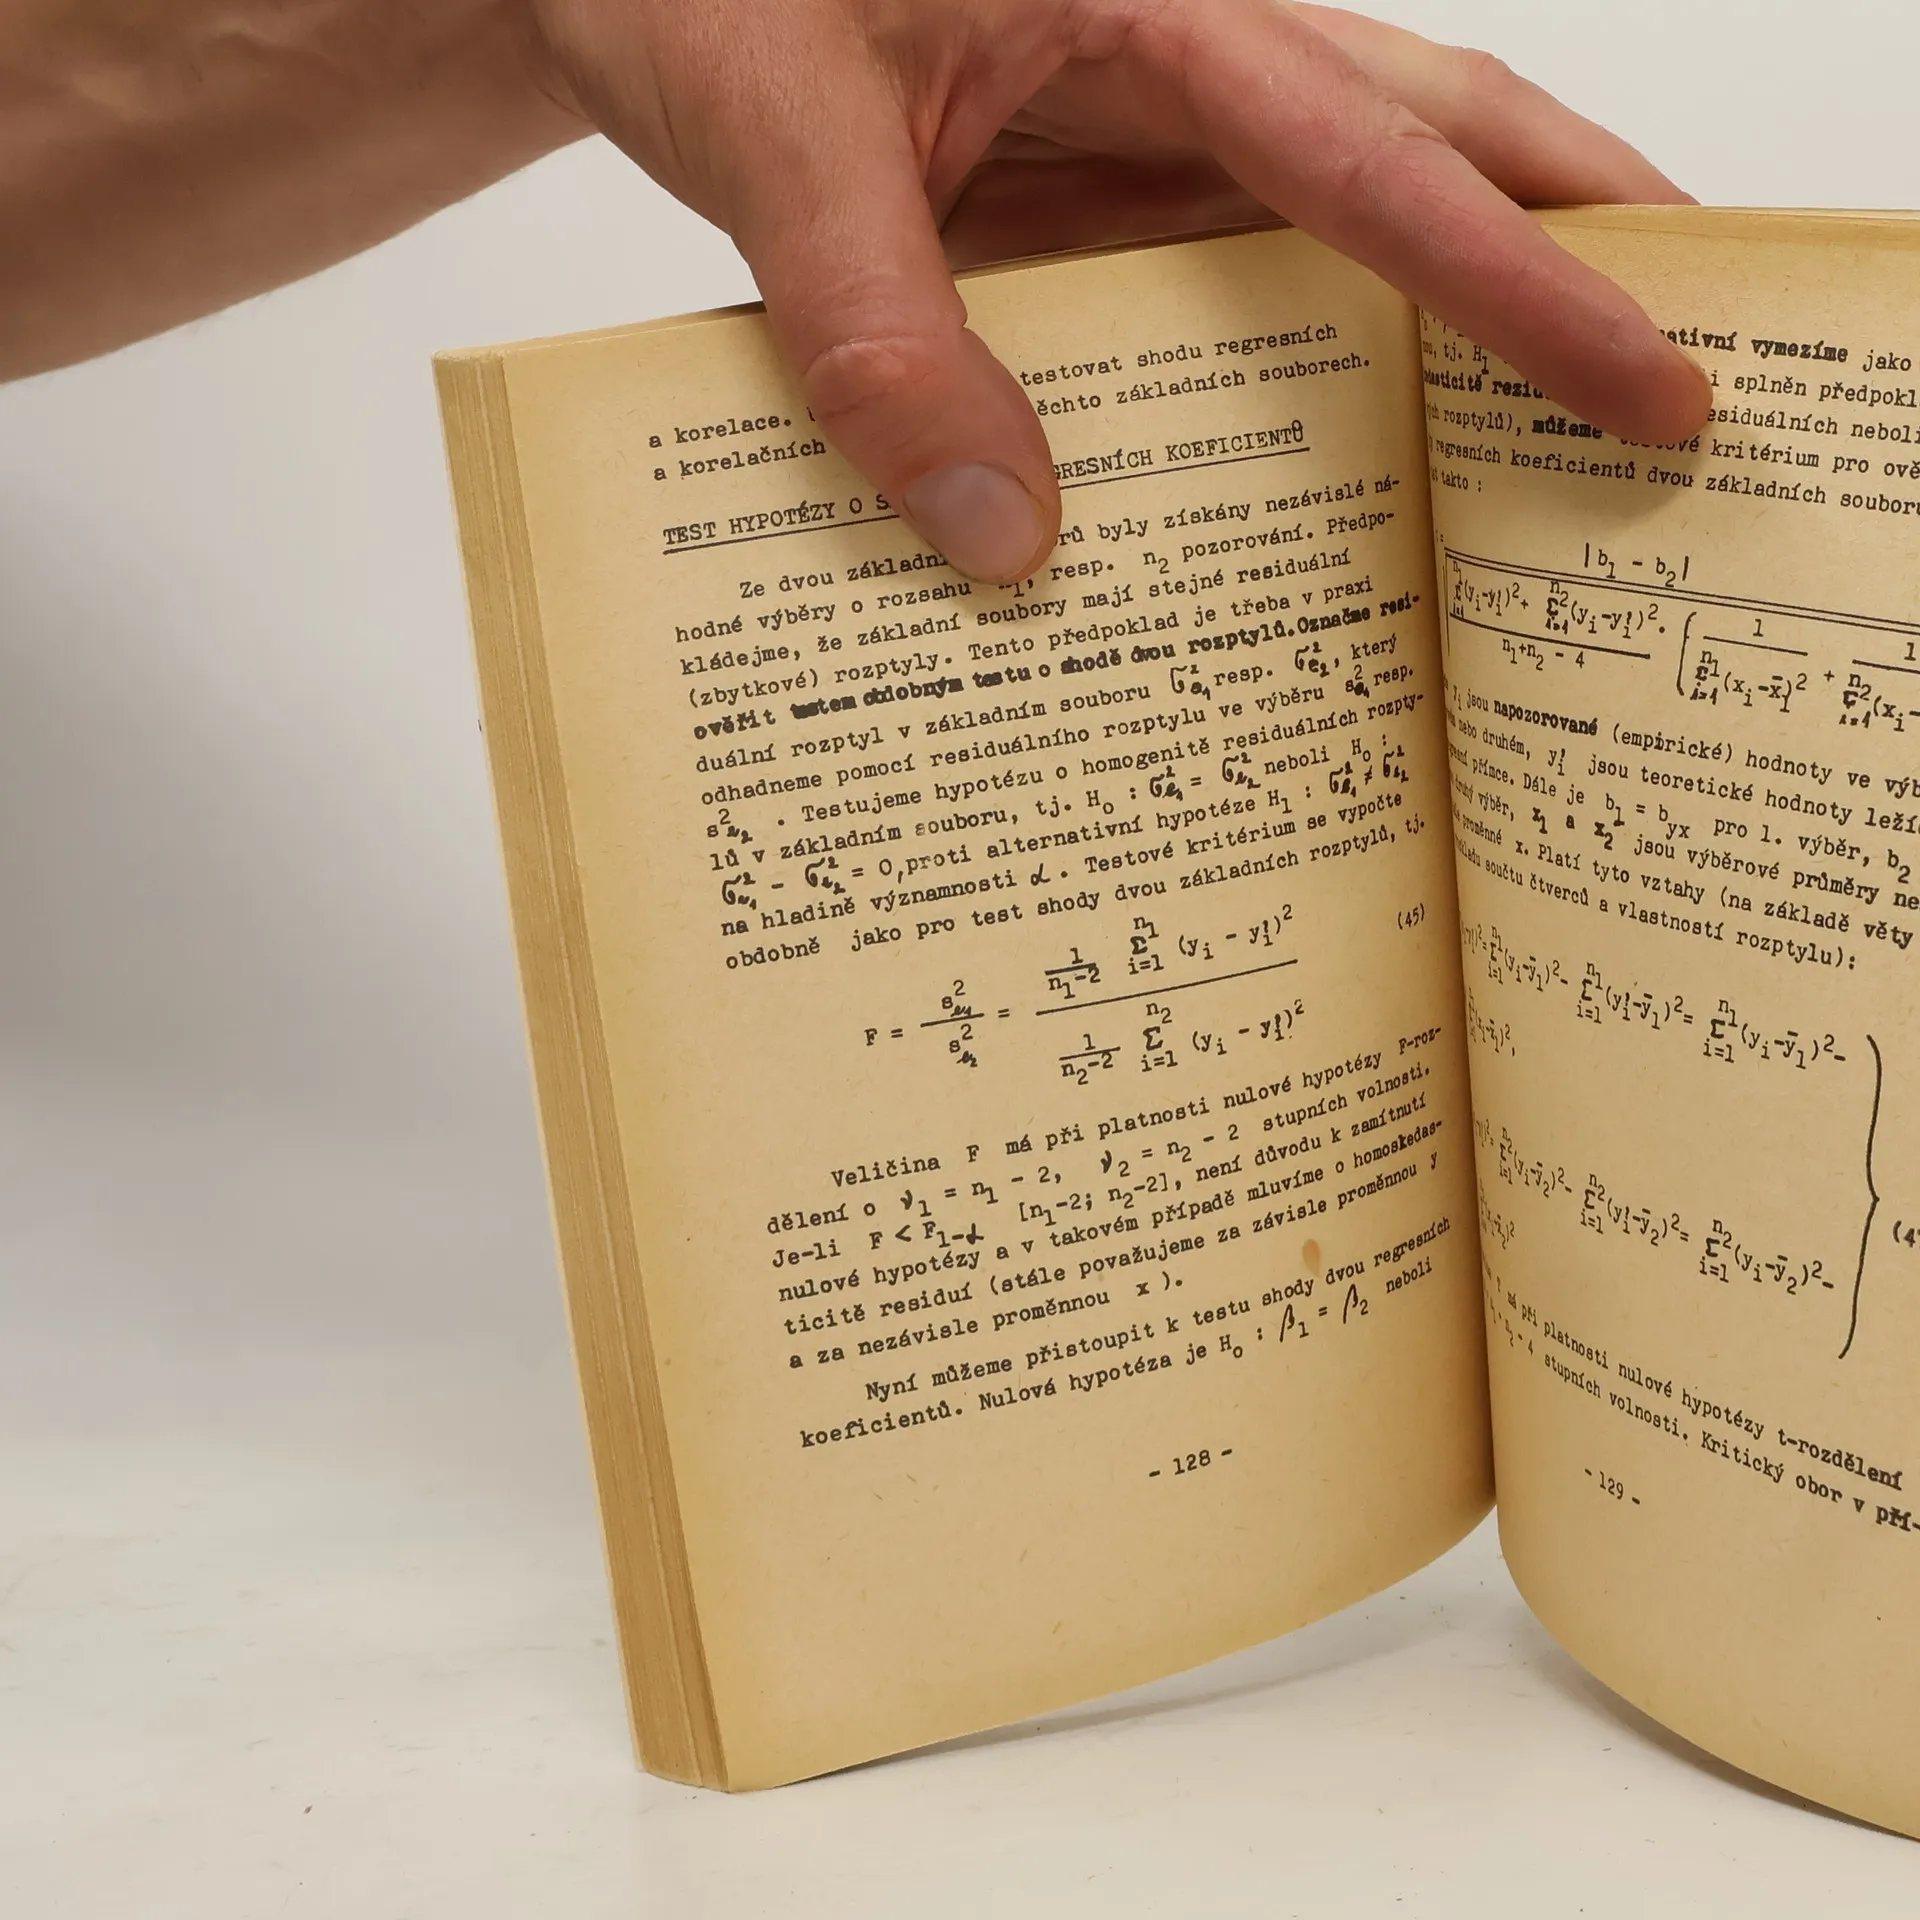 testovat shodu regresních
a korelace. ěchto základních souborech.
a korelačních
TEST HYPOTÉZY O S GRESNÍCH KOEFICIENTŮ
Ze dvou základní rů byly získány nezávislé ná-
hodné výběry o rozsahu n₁, resp. n₂ pozorování. Předpo-
kládejme, že základní soubory mají stejné residuální
(zbytkové) rozptyly. Tento předpoklad je třeba v praxi
ověřit testem obdobným testu o shodě dvou rozptylů. Označme resi-
duální rozptyl v základním souboru σ²ₑ₁ resp. σ²ₑ₂, který
odhadneme pomocí residuálního rozptylu ve výběru s²ₑ₁ resp.
s²ₑ₂ . Testujeme hypotézu o homogenitě residuálních rozpty-
lů v základním souboru, tj. H₀ : σ²ₑ₁ = σ²ₑ₂ neboli H₀ :
σ²ₑ₁ - σ²ₑ₂ = 0, proti alternativní hypotéze H₁ : σ²ₑ₁ ≠ σ²ₑ₂
na hladině významnosti α . Testové kritérium se vypočte
obdobně jako pro test shody dvou základních rozptylů, tj.
F = s²ₑ₁ / s²ₑ₂ = 1/(n₁-2) Σ_{i=1}^{n₁} (yᵢ - yᵢ')² / 1/(n₂-2) Σ_{i=1}^{n₂} (yᵢ - yᵢ')² (45)
Veličina F má při platnosti nulové hypotézy F-roz-
dělení o ν₁ = n₁ - 2, ν₂ = n₂ - 2 stupních volnosti.
Je-li F < F₁₋α [n₁-2; n₂-2], není důvodu k zamítnutí
nulové hypotézy a v takovém případě mluvíme o homoskedas-
ticitě residuí (stále považujeme za závisle proměnnou y
a za nezávisle proměnnou x ).
Nyní můžeme přistoupit k testu shody dvou regresních
koeficientů. Nulová hypotéza je H₀ : β₁ = β₂ neboli
- 128 -
ativní vymezíme jako
tj. H₁ i splněn předpokl
esiduálních neboli
rozptylů), můžeme testové kritérium pro ově
regresních koeficientů dvou základních soubor
takto :
|b₁ - b₂|
Σ_{i=1}^{n₁}(yᵢ-yᵢ')² + Σ_{i=1}^{n₂}(yᵢ-yᵢ')² . ( 1 + 1
n₁+n₂ - 4 Σ_{i=1}^{n₁}(xᵢ-x̄₁)² Σ_{i=1}^{n₂}(xᵢ-
yᵢ jsou napozorované (empirické) hodnoty ve výb
nebo druhém, yᵢ' jsou teoretické hodnoty leží
přímce. Dále je b₁ = b_yx pro 1. výběr, b₂
druhý výběr, x̄₁ a x̄₂ jsou výběrové průměry ne
proměnné x. Platí tyto vztahy (na základě věty
součtu čtverců a vlastností rozptylu):
Σ_{i=1}^{n₁}(yᵢ-ȳ₁)²- Σ_{i=1}^{n₁}(yᵢ'-ȳ₁)²= Σ_{i=1}^{n₁}(yᵢ-ȳ₁)²-
Σ_{i=1}^{n₂}(yᵢ-ȳ₂)²- Σ_{i=1}^{n₂}(yᵢ'-ȳ₂)²= Σ_{i=1}^{n₂}(yᵢ-ȳ₂)²-
má při platnosti nulové hypotézy t-rozdělení
n₂ - 4 stupních volnosti. Kritický obor v pří-
- 129 -